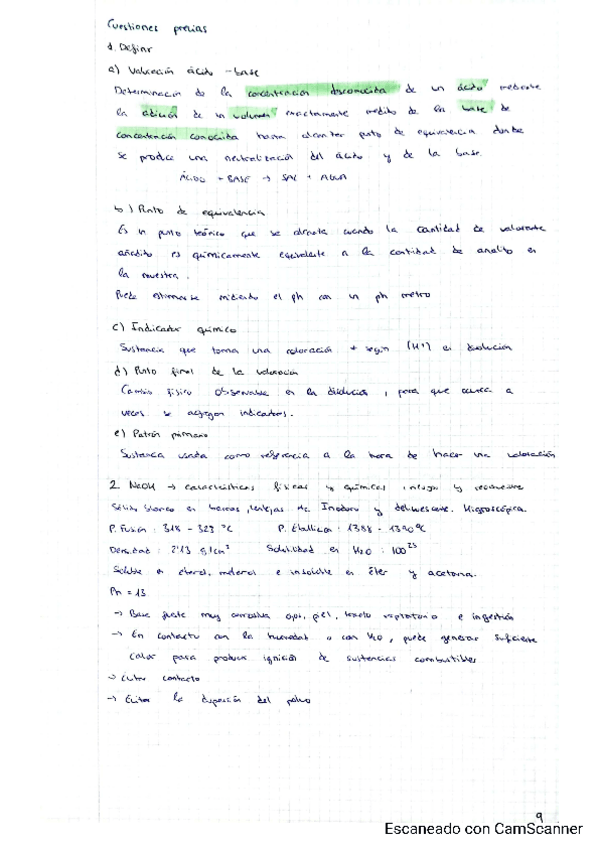 Cuestiones previas
1. Definir
a) Valoración ácido - base
Determinación de la concentración desconocida de un ácido mediante
la adición de un volumen exactamente medido de la base de
concentración conocida hasta alcanzar punto de equivalencia donde
se produce una neutralización del ácido y de la base.
ÁCIDO + BASE → SAL + AGUA
b) Punto de equivalencia
Es un punto teórico que se alcanza cuando la cantidad de valorante
añadido es químicamente equivalente a la cantidad de analito en
la muestra.
Puede estimarse midiendo el ph con un ph metro
c) Indicador químico
Sustancia que toma una coloración ≠ según [H+] en disolución
d) Punto final de la valoración
Cambio físico observable en la disolución, para que ocurra a
veces se agregan indicadores.
e) Patrón primario
Sustancia usada como referencia a la hora de hacer una valoración
2. NaOH → características físicas y químicas, riesgo y
Sólido blanco en barras, lentejas etc. Inodoro y delicuescente. Higroscópica.
P. Fusión: 318 - 323 ºC P. Ebullición: 1388 - 1390ºC
Densidad: 2'13 g/cm³ Solubilidad en H2O: 100
Soluble en etanol, metanol e insoluble en éter y acetona.
PH = 13
→ Base fuerte muy corrosiva ojos, piel, tracto respiratorio e ingestión
→ En contacto con la humedad o con H2O, puede generar suficiente
calor para producir ignición de sustancias combustibles
→ Evitar contacto
→ Evitar la dispersión del polvo
9
Escaneado con CamScanner